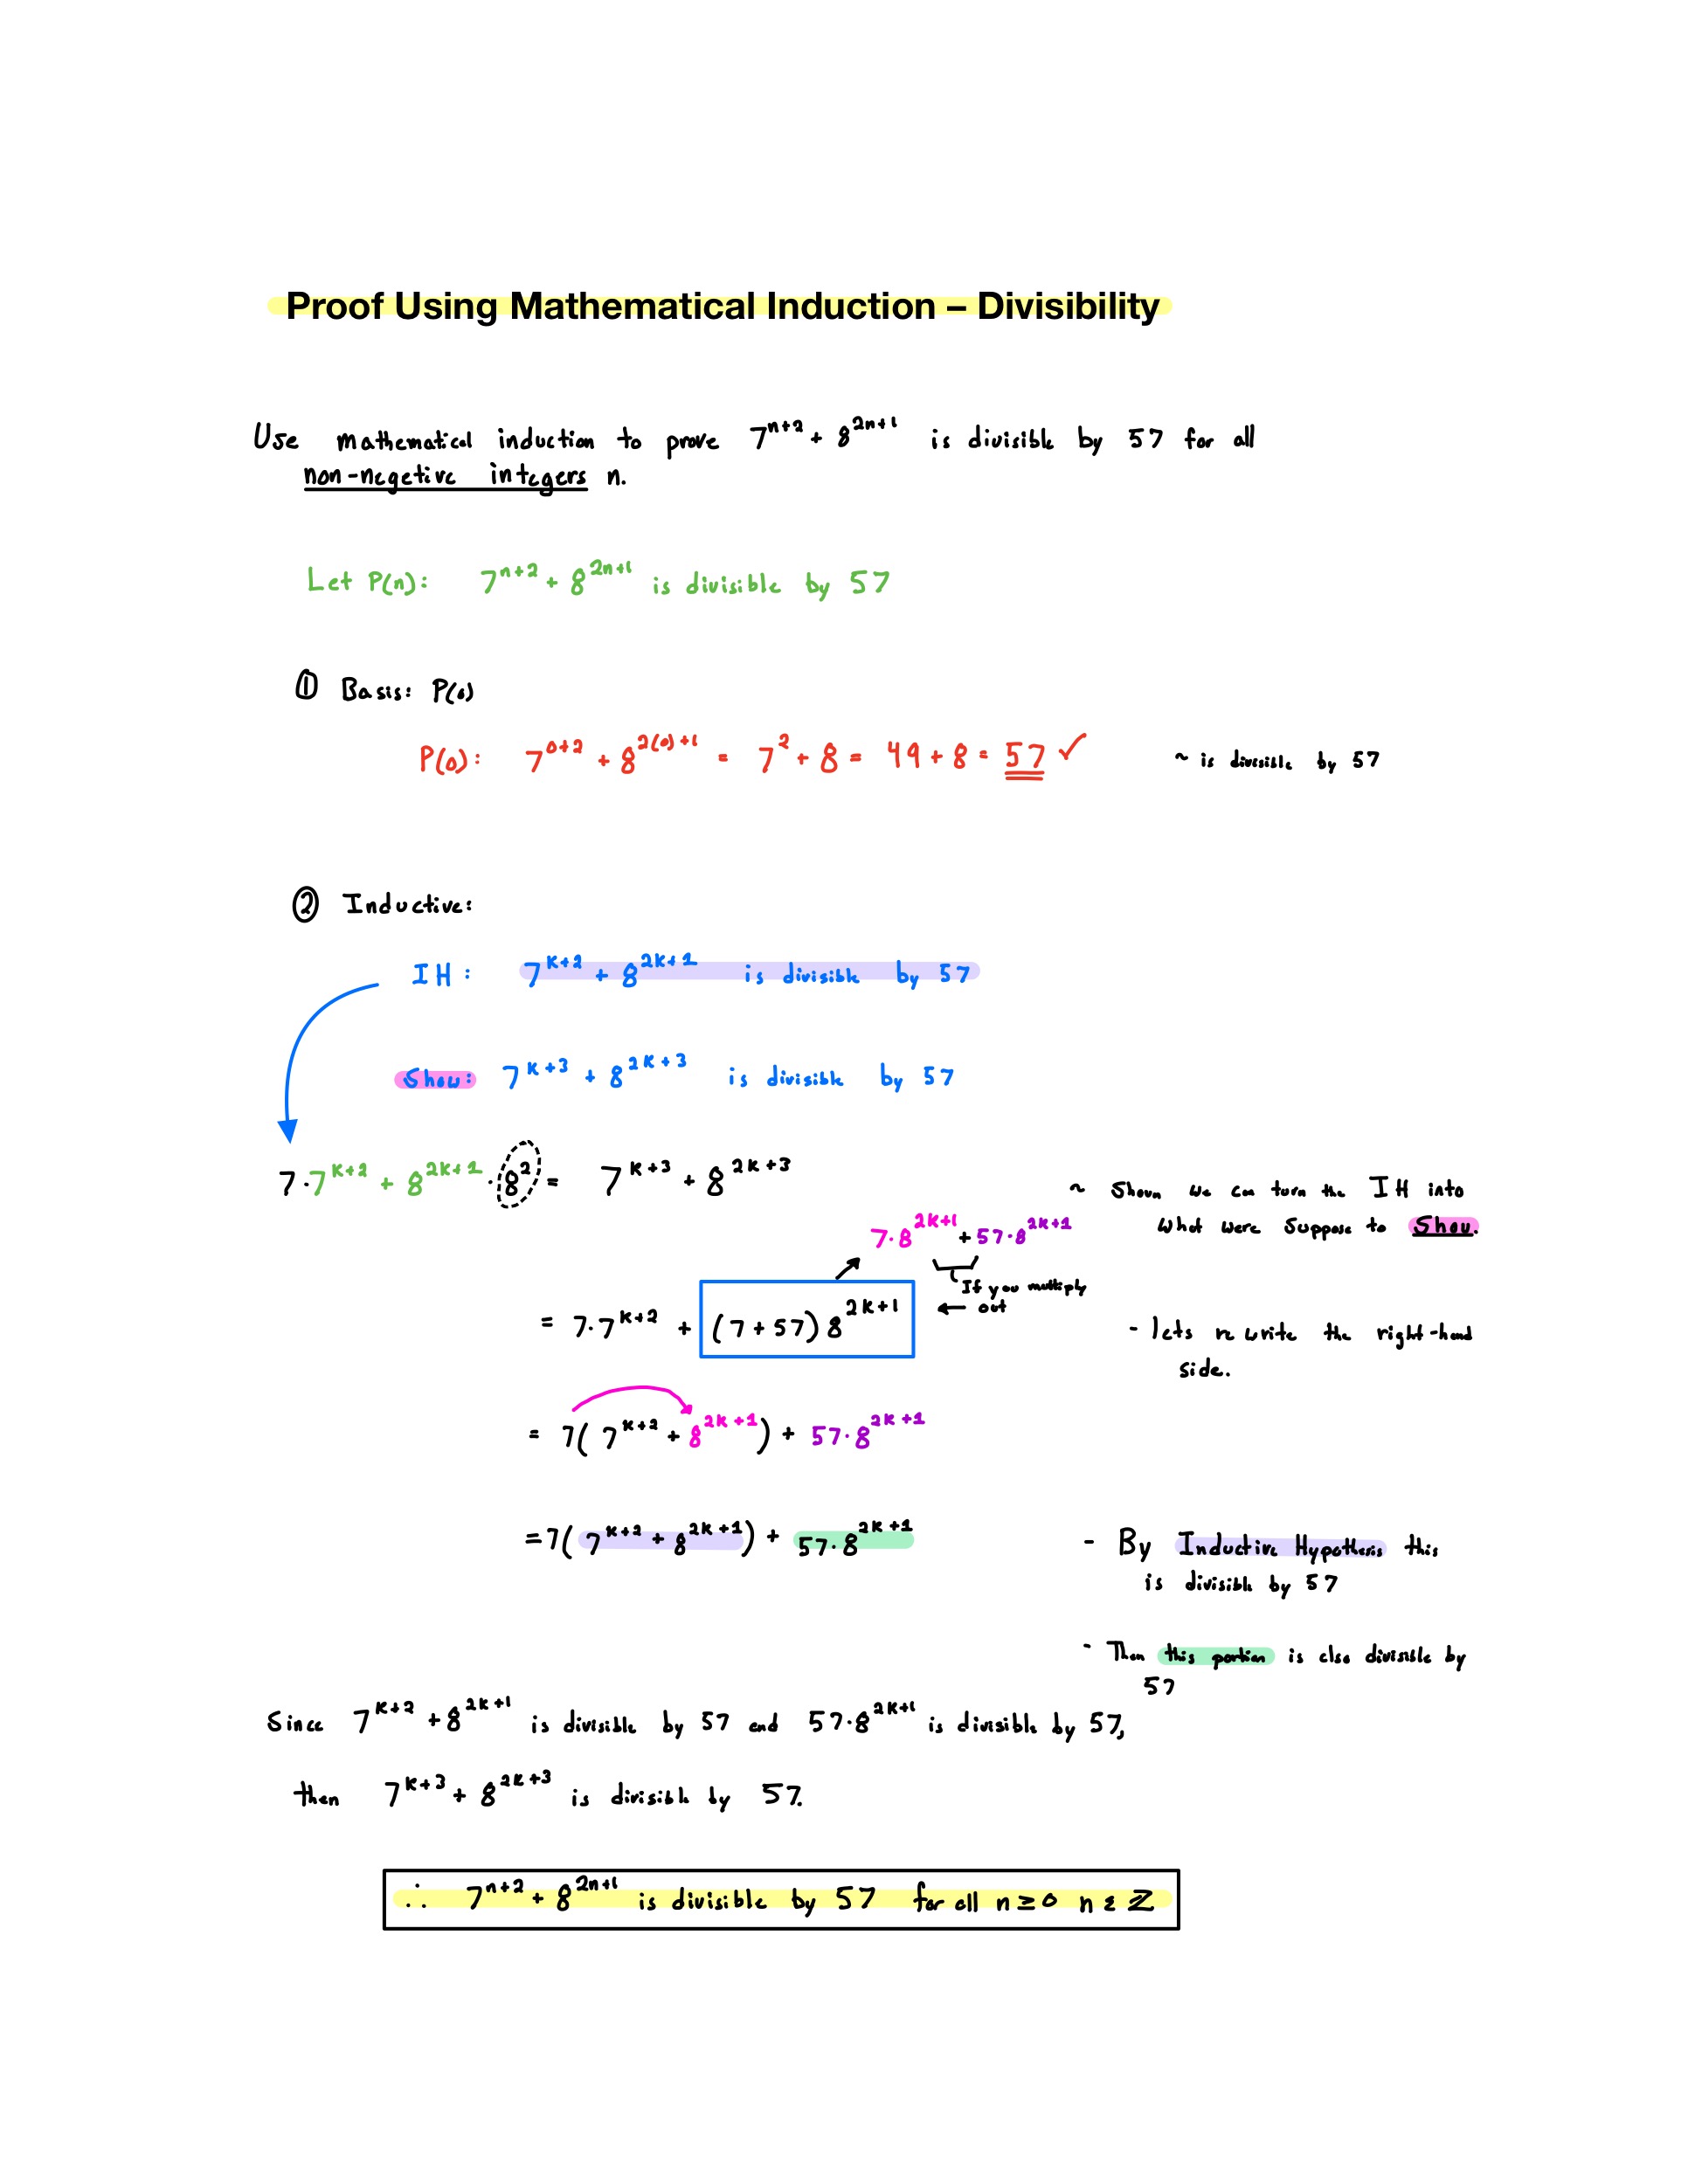 Proof Using Mathematical Induction – Divisibility
Use mathematical induction to prove 7^{n+2} + 8^{2n+1} is divisible by 57 for all
non-negetive integers n.
Let P(n): 7^{n+2} + 8^{2n+1} is divisible by 57
① Basis: P(0)
P(0): 7^{0+2} + 8^{2(0)+1} = 7^2 + 8 = 49 + 8 = 57 ✓ ~ is divisible by 57
② Inductive:
IH: 7^{k+2} + 8^{2k+1} is divisible by 57
Show: 7^{k+3} + 8^{2k+3} is divisible by 57
7·7^{k+2} + 8^{2k+1}·8^2 = 7^{k+3} + 8^{2k+3}
~ Shown we can turn the IH into
what were suppose to Show.
7·8^{2k+1} + 57·8^{2k+1}
If you multiply
← out
= 7·7^{k+2} + (7+57)8^{2k+1}
- lets rewrite the right-hand
side.
= 7(7^{k+2} + 8^{2k+1}) + 57·8^{2k+1}
= 7(7^{k+2} + 8^{2k+1}) + 57·8^{2k+1}
- By Inductive Hypothesis this
is divisible by 57
- Then this portion is also divisible by
57
Since 7^{k+2} + 8^{2k+1} is divisible by 57 and 57·8^{2k+1} is divisible by 57,
then 7^{k+3} + 8^{2k+3} is divisible by 57.
∴ 7^{n+2} + 8^{2n+1} is divisible by 57 for all n ≥ 0 n ε Z